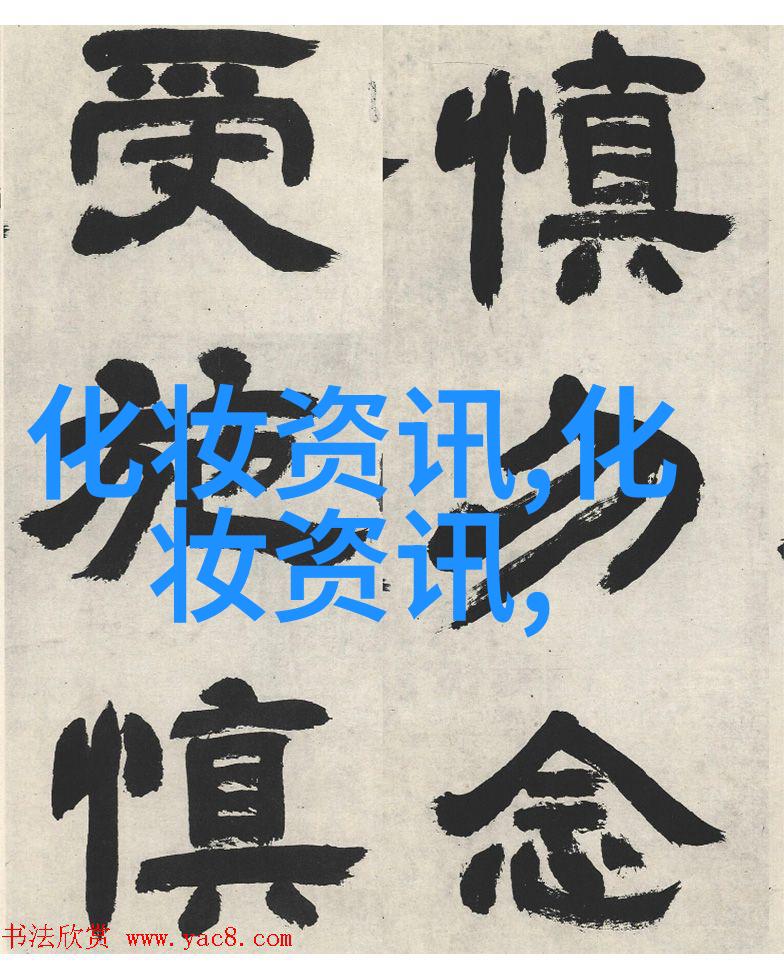 慎勿念
受施慎
化妆资讯,化
妆资讯,
书法欣赏 www.yac8.com